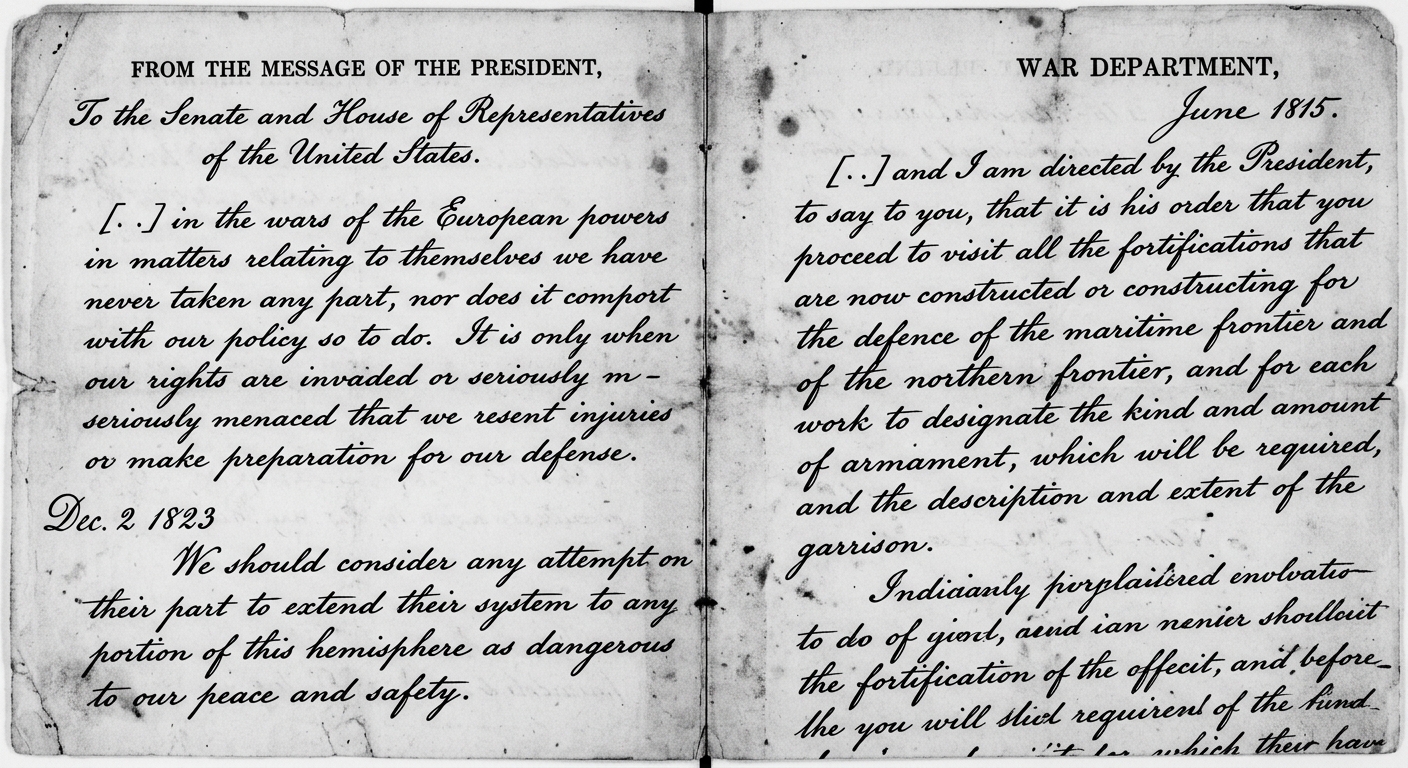 FROM THE MESSAGE OF THE PRESIDENT,
To the Senate and House of Representatives
of the United States.
[. .] in the wars of the European powers
in matters relating to themselves we have
never taken any part, nor does it comport
with our policy so to do. It is only when
our rights are invaded or seriously m–
seriously menaced that we resent injuries
or make preparation for our defense.
Dec. 2 1823
We should consider any attempt on
their part to extend their system to any
portion of this hemisphere as dangerous
to our peace and safety.
WAR DEPARTMENT,
June 1815.
[. .] and I am directed by the President,
to say to you, that it is his order that you
proceed to visit all the fortifications that
are now constructed or constructing for
the defence of the maritime frontier and
of the northern frontier, and for each
work to designate the kind and amount
of armament, which will be required,
and the description and extent of the
garrison.
to do of and ian
the fortification of the offecit, and before–
the you will of the
which their have